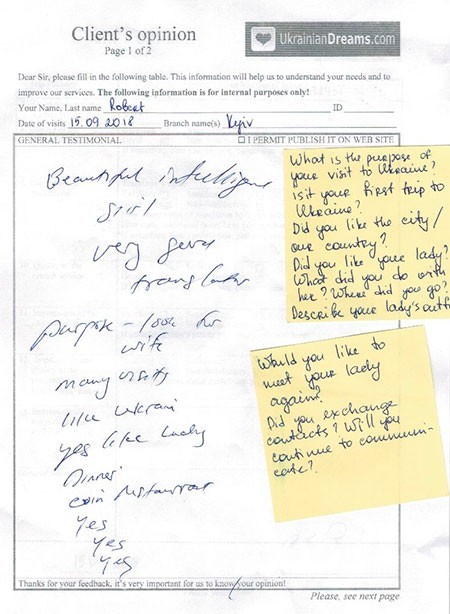 Client's opinion
Page 1 of 2
UkrainianDreams.com
Dear Sir, please fill in the following table. This information will help us to understand your needs and to
improve our services. The following information is for internal purposes only!
Your Name, Last name Robert ID
Date of visits 15.09 2018 Branch name(s) Kyiv
GENERAL TESTIMONIAL ☐ I PERMIT PUBLISH IT ON WEB SITE
Beautiful intelligent
girl
very good
translator
purpose - look for
wife
many visits
like Ukrain
yes like lady
Dinner
restaurant
Yes
Yes
Yes
What is the purpose of
your visit to Ukraine?
Is it your first trip to
Ukraine?
Did you like the city/
our country?
Did you like your lady?
What did you do with
her? Where did you go?
Describe your lady's outfi
Would you like to
meet your lady
again?
Did you exchange
contacts? Will you
continue to communi-
cate?
Thanks for your feedback, it's very important for us to know your opinion!
Please, see next page